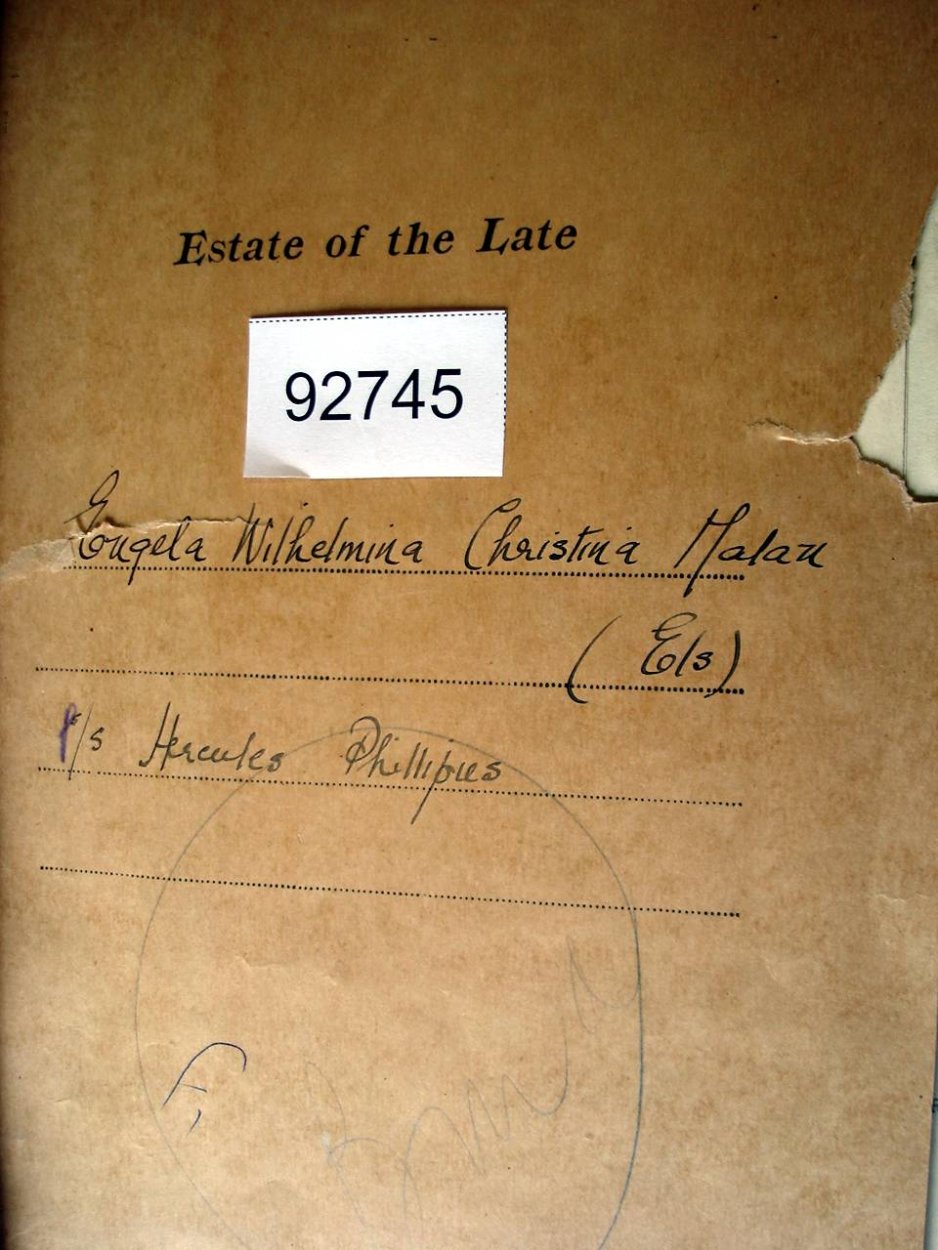 Estate of the Late
92745
Engela Wilhelmina Christina Malan
(Els)
p/s Hercules Phillipus